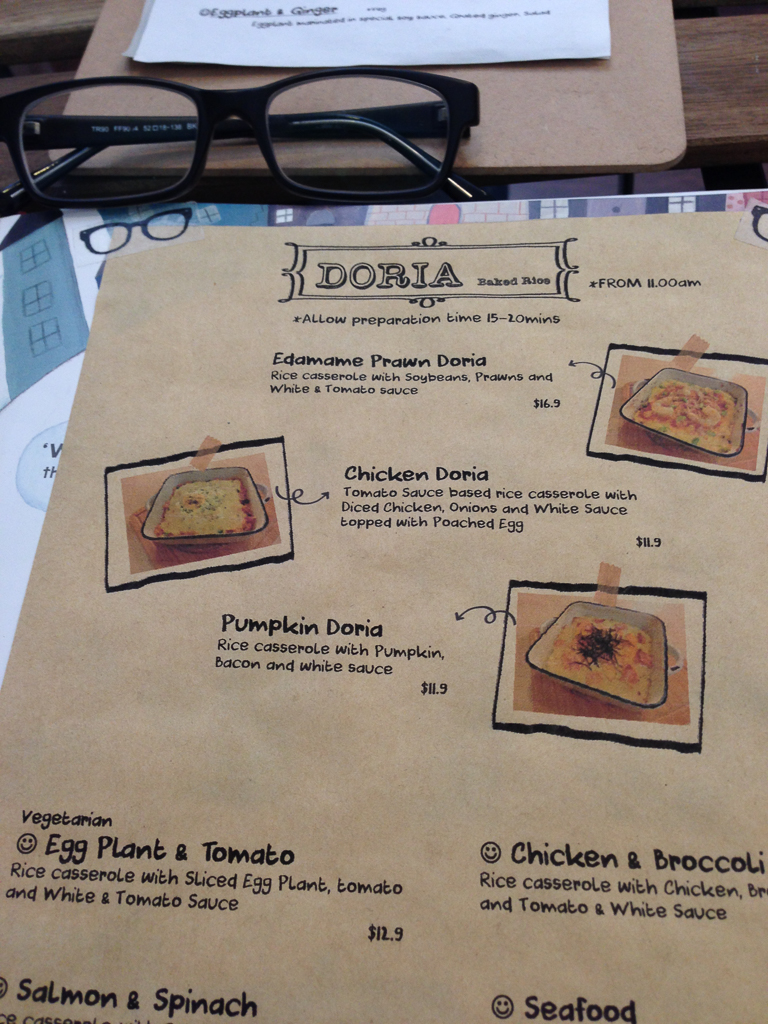 Eggplant & Ginger
TR90 FF90-4 52□19-138
DORIA Baked Rice *FROM 11.00am
*Allow preparation time 15-20mins
Edamame Prawn Doria
Rice casserole with Soybeans, Prawns and
White & Tomato sauce
$16.9
Chicken Doria
Tomato Sauce based rice casserole with
Diced Chicken, Onions and White Sauce
topped with Poached Egg
$11.9
Pumpkin Doria
Rice casserole with Pumpkin,
Bacon and white sauce
$11.9
Vegetarian
Egg Plant & Tomato
Rice casserole with Sliced Egg Plant, tomato
and White & Tomato Sauce
$12.9
Chicken & Broccoli
Rice casserole with Chicken, Br
and Tomato & White Sauce
Salmon & Spinach
Seafood